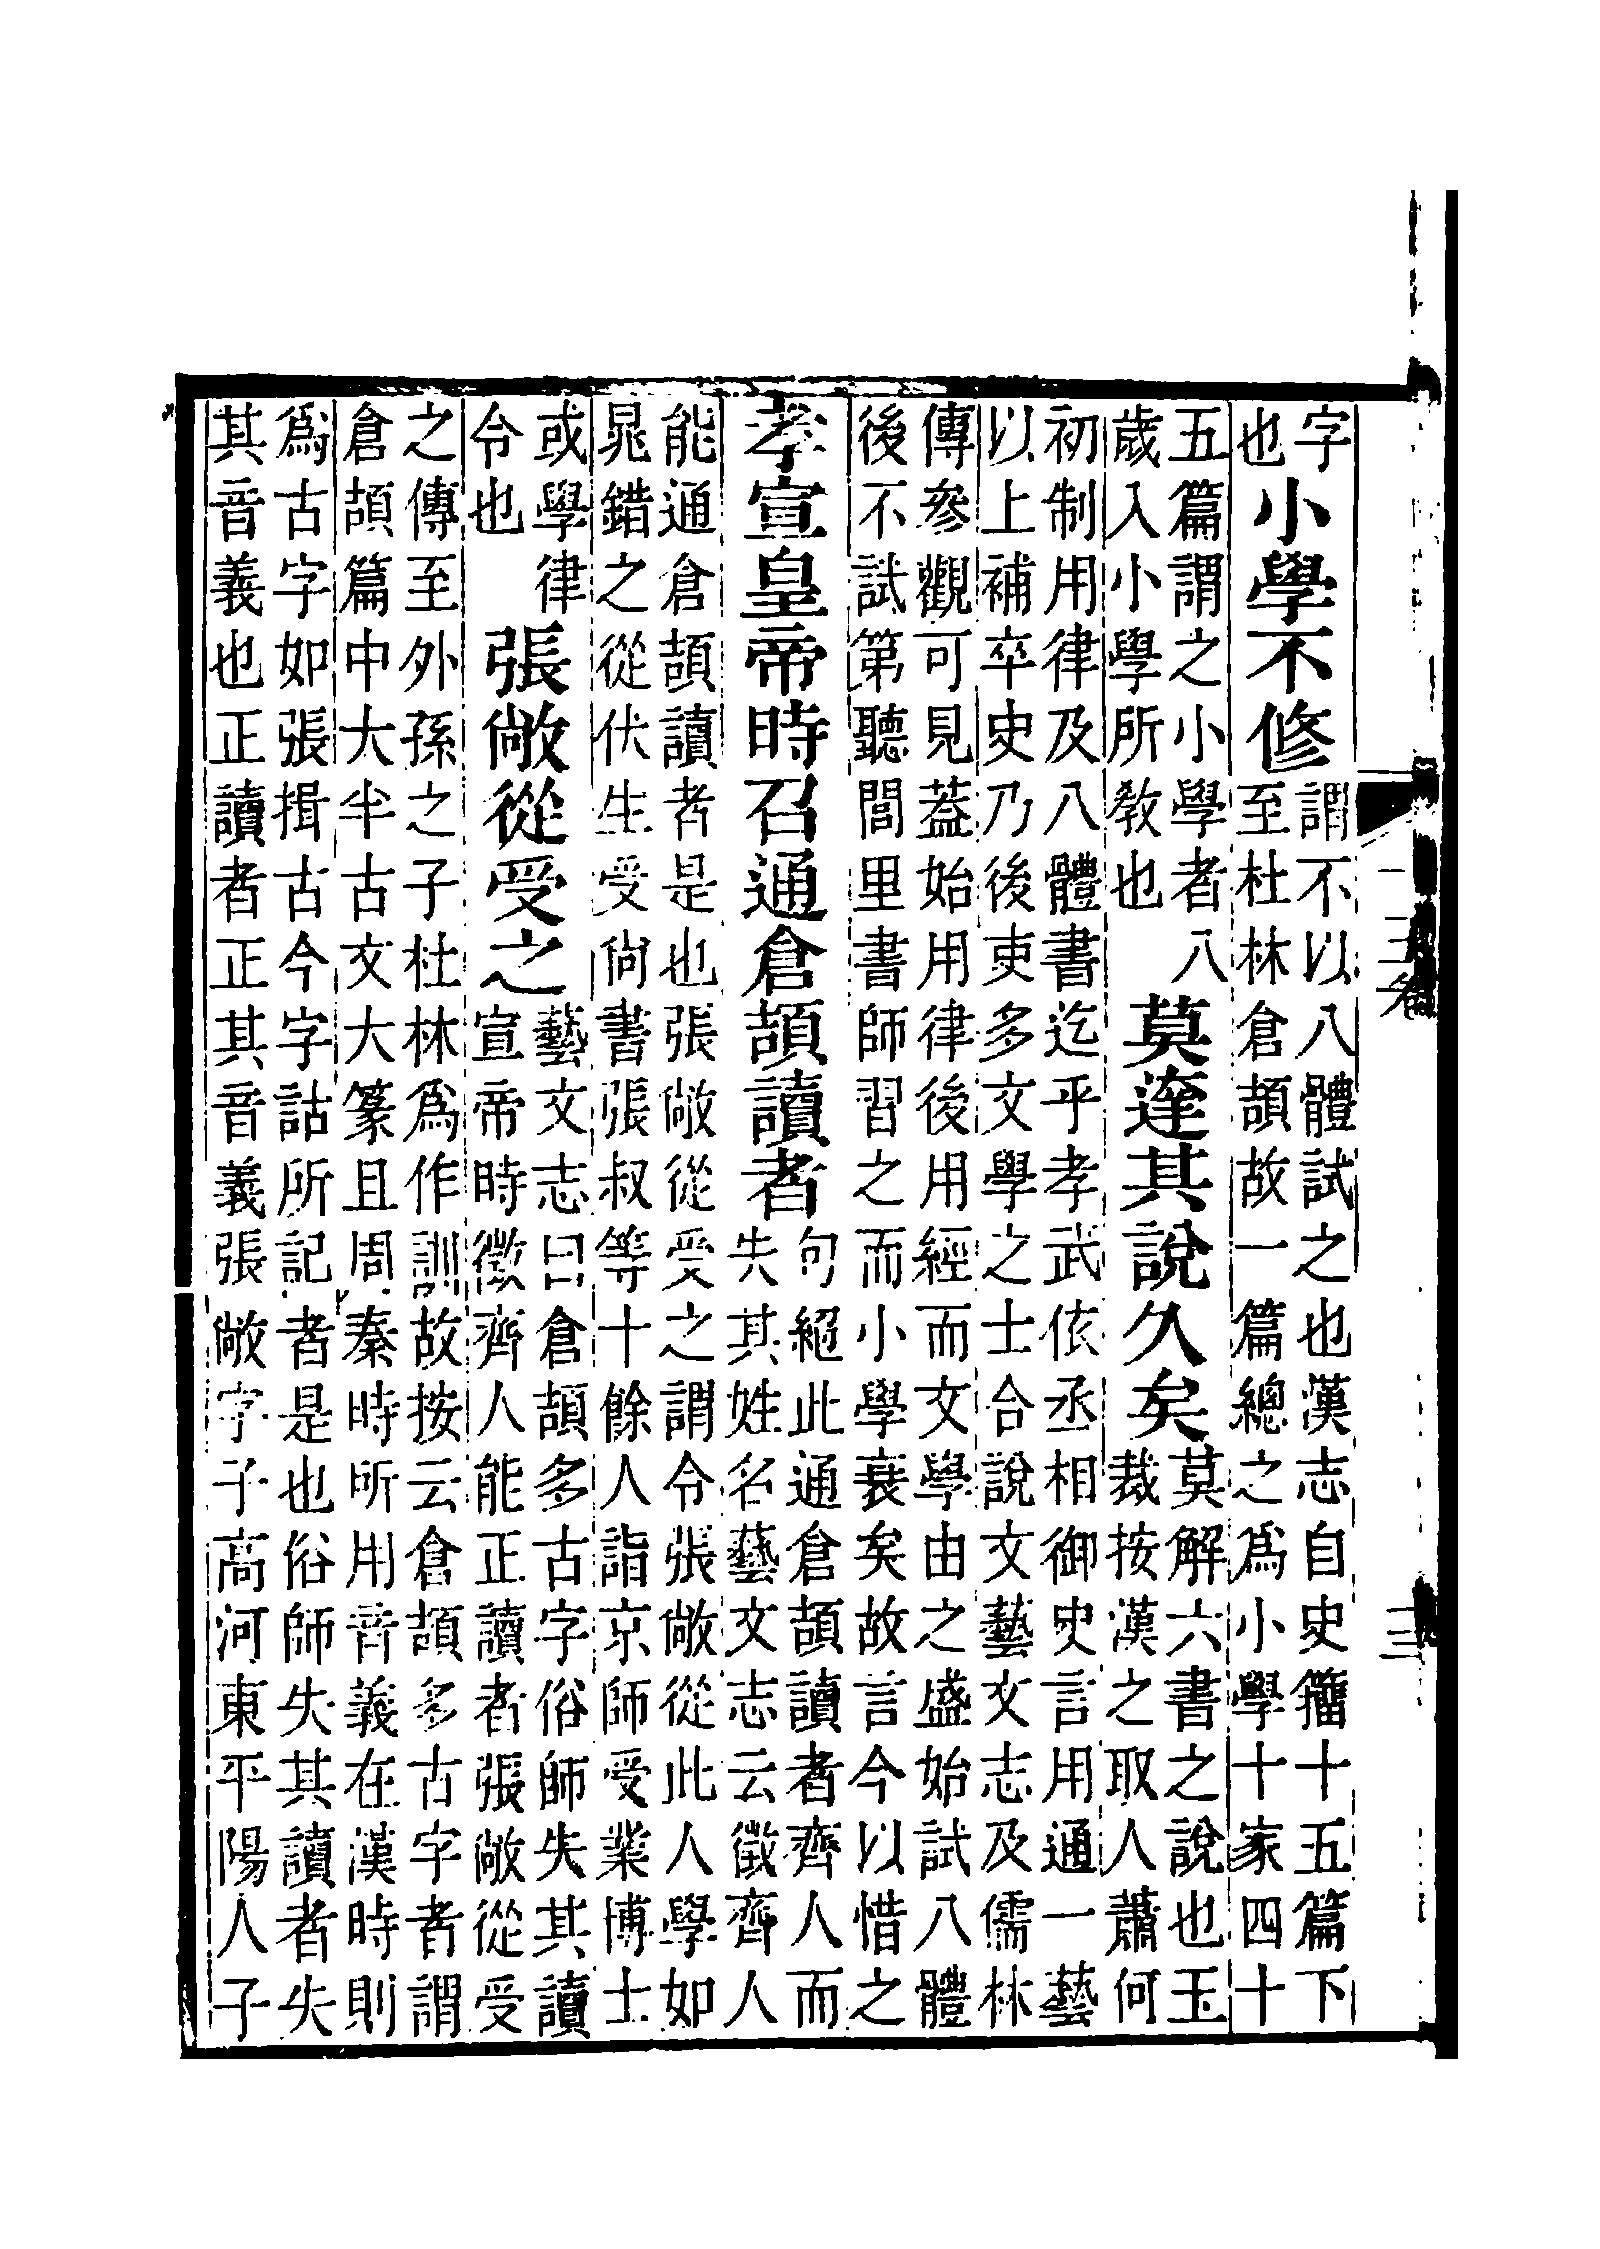 字
也
小學不修
謂不以八體試之也漢志自史籒十五篇下
至杜林倉頡故一篇總之爲小學十家四十
五篇謂之小學者八
歲入小學所敎也
莫逹其說久矣
莫解六書之說也玉
裁按漢之取人蕭何
初制用律及八體書迄乎孝武依丞相御史言用通一藝
以上補卒史乃後吏多文學之士合說文藝文志及儒林
傳參觀可見葢始用律後用經而文學由之盛始試八體
後不試第聽閭里書師習之而小學衰矣故言今以惜之
孝宣皇帝時召通倉頡讀者
句絕此通倉頡讀者齊人而
失其姓名藝文志云徵齊人
能通倉頡讀者是也張敞從受之謂令張敞從此人學如
晁錯之從伏生受尙書張叔等十餘人詣京師受業博士
或學律
令也
張敞從受之
藝文志曰倉頡多古字俗師失其讀
宣帝時徵齊人能正讀者張敞從受
之傳至外孫之子杜林爲作訓故按云倉頡多古字者謂
倉頡篇中大半古文大篆且周秦時所用音義在漢時則
爲古字如張揖古今字詁所記者是也俗師失其讀者失
其音義也正讀者正其音義張敞字子高河東平陽人子